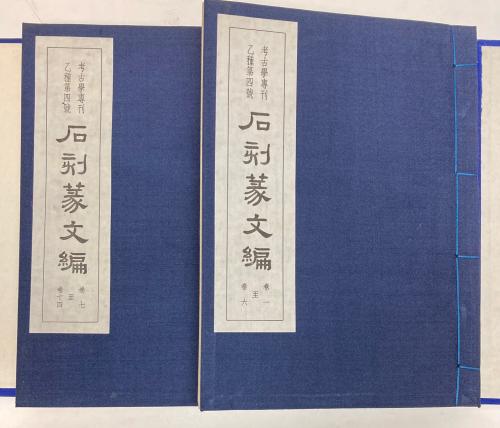 考古學專刊
乙種第四號
石刻篆文編
卷一
至
卷六
考古學專刊
乙種第四號
石刻篆文編
卷七
至
卷十四